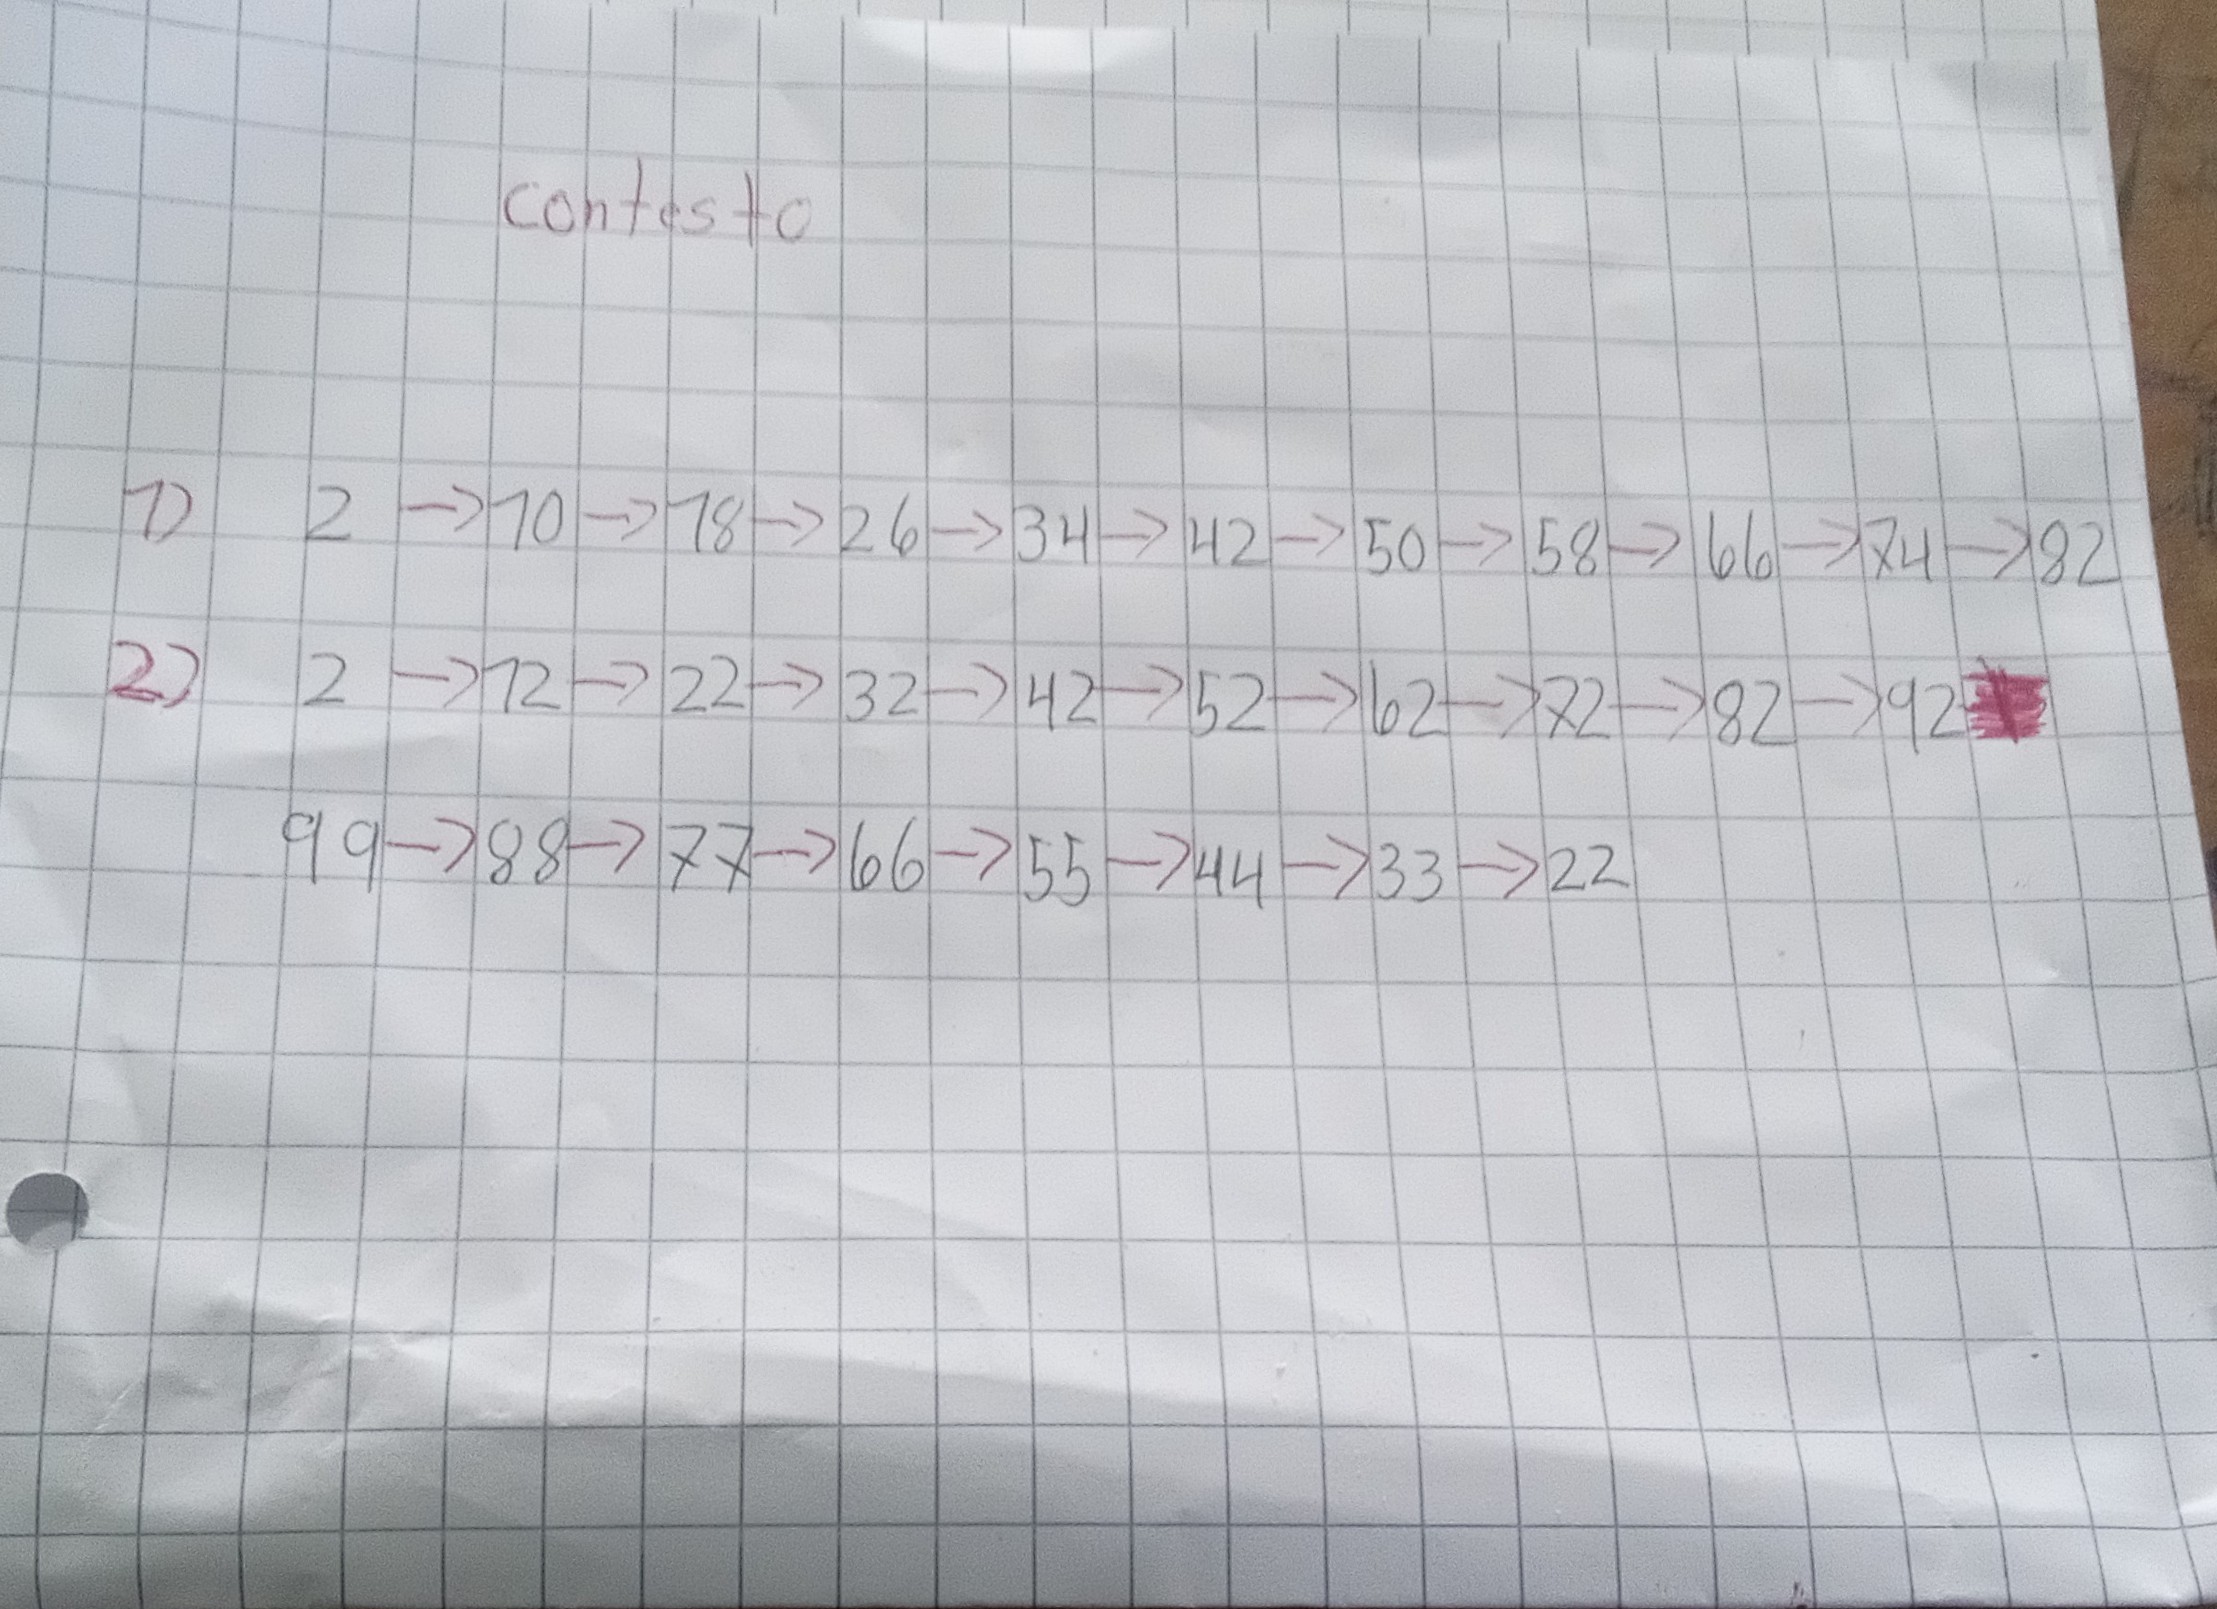 contesto
1) 2 → 10 → 18 → 26 → 34 → 42 → 50 → 58 → 66 → 74 → 82
2) 2 → 12 → 22 → 32 → 42 → 52 → 62 → 72 → 82 → 92
99 → 88 → 77 → 66 → 55 → 44 → 33 → 22